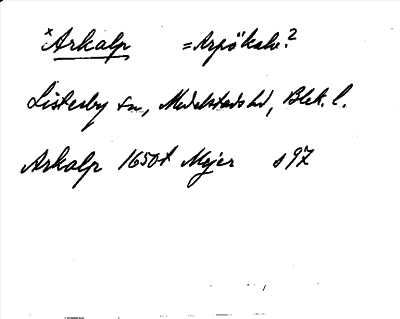 ×Arkalp =Arpökalv?
Listerby sn, Medelstads hd, Blek. l.
Arkalp 1650t Meijer s 97